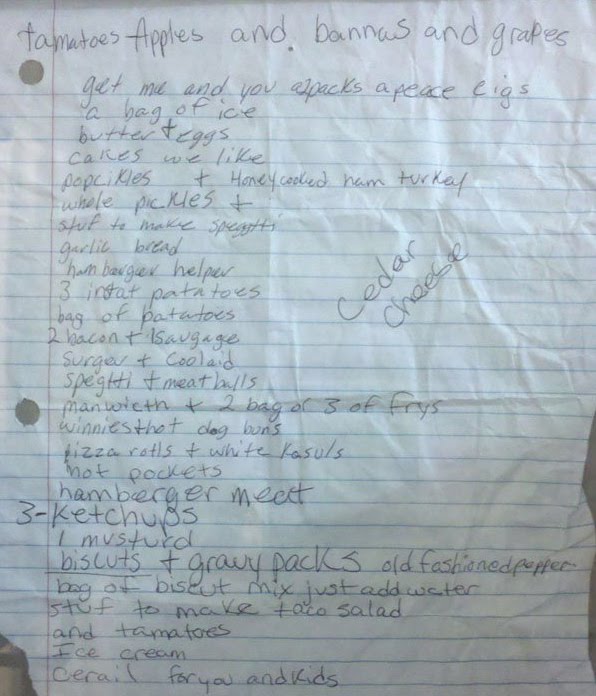 tamatoes Apples and. bannas and grapes
get me and you a 2packs a peace cigs
a bag of ice
butter + eggs
cakes we like
popcikles + Honeycooked ham turkey
whole pickles +
stuf to make spegtti
garlic bread
hambarger helper
3 instat patatoes
bag of patatoes
Cedar
cheese
2 bacon + 1 sausage
Surger + Coolaid
Spegtti + meatballs
manwicth + 2 bag or 3 of frys
winnies + hot dog buns
pizza rolls + white Kasuls
hot pockets
hamberger meat
3-Ketchups
1 musturd
biscuts + gravy packs old fashioned pepper
bag of biscut mix just add water
stuf to make taco salad
and tamatoes
Ice cream
cerail for you and kids